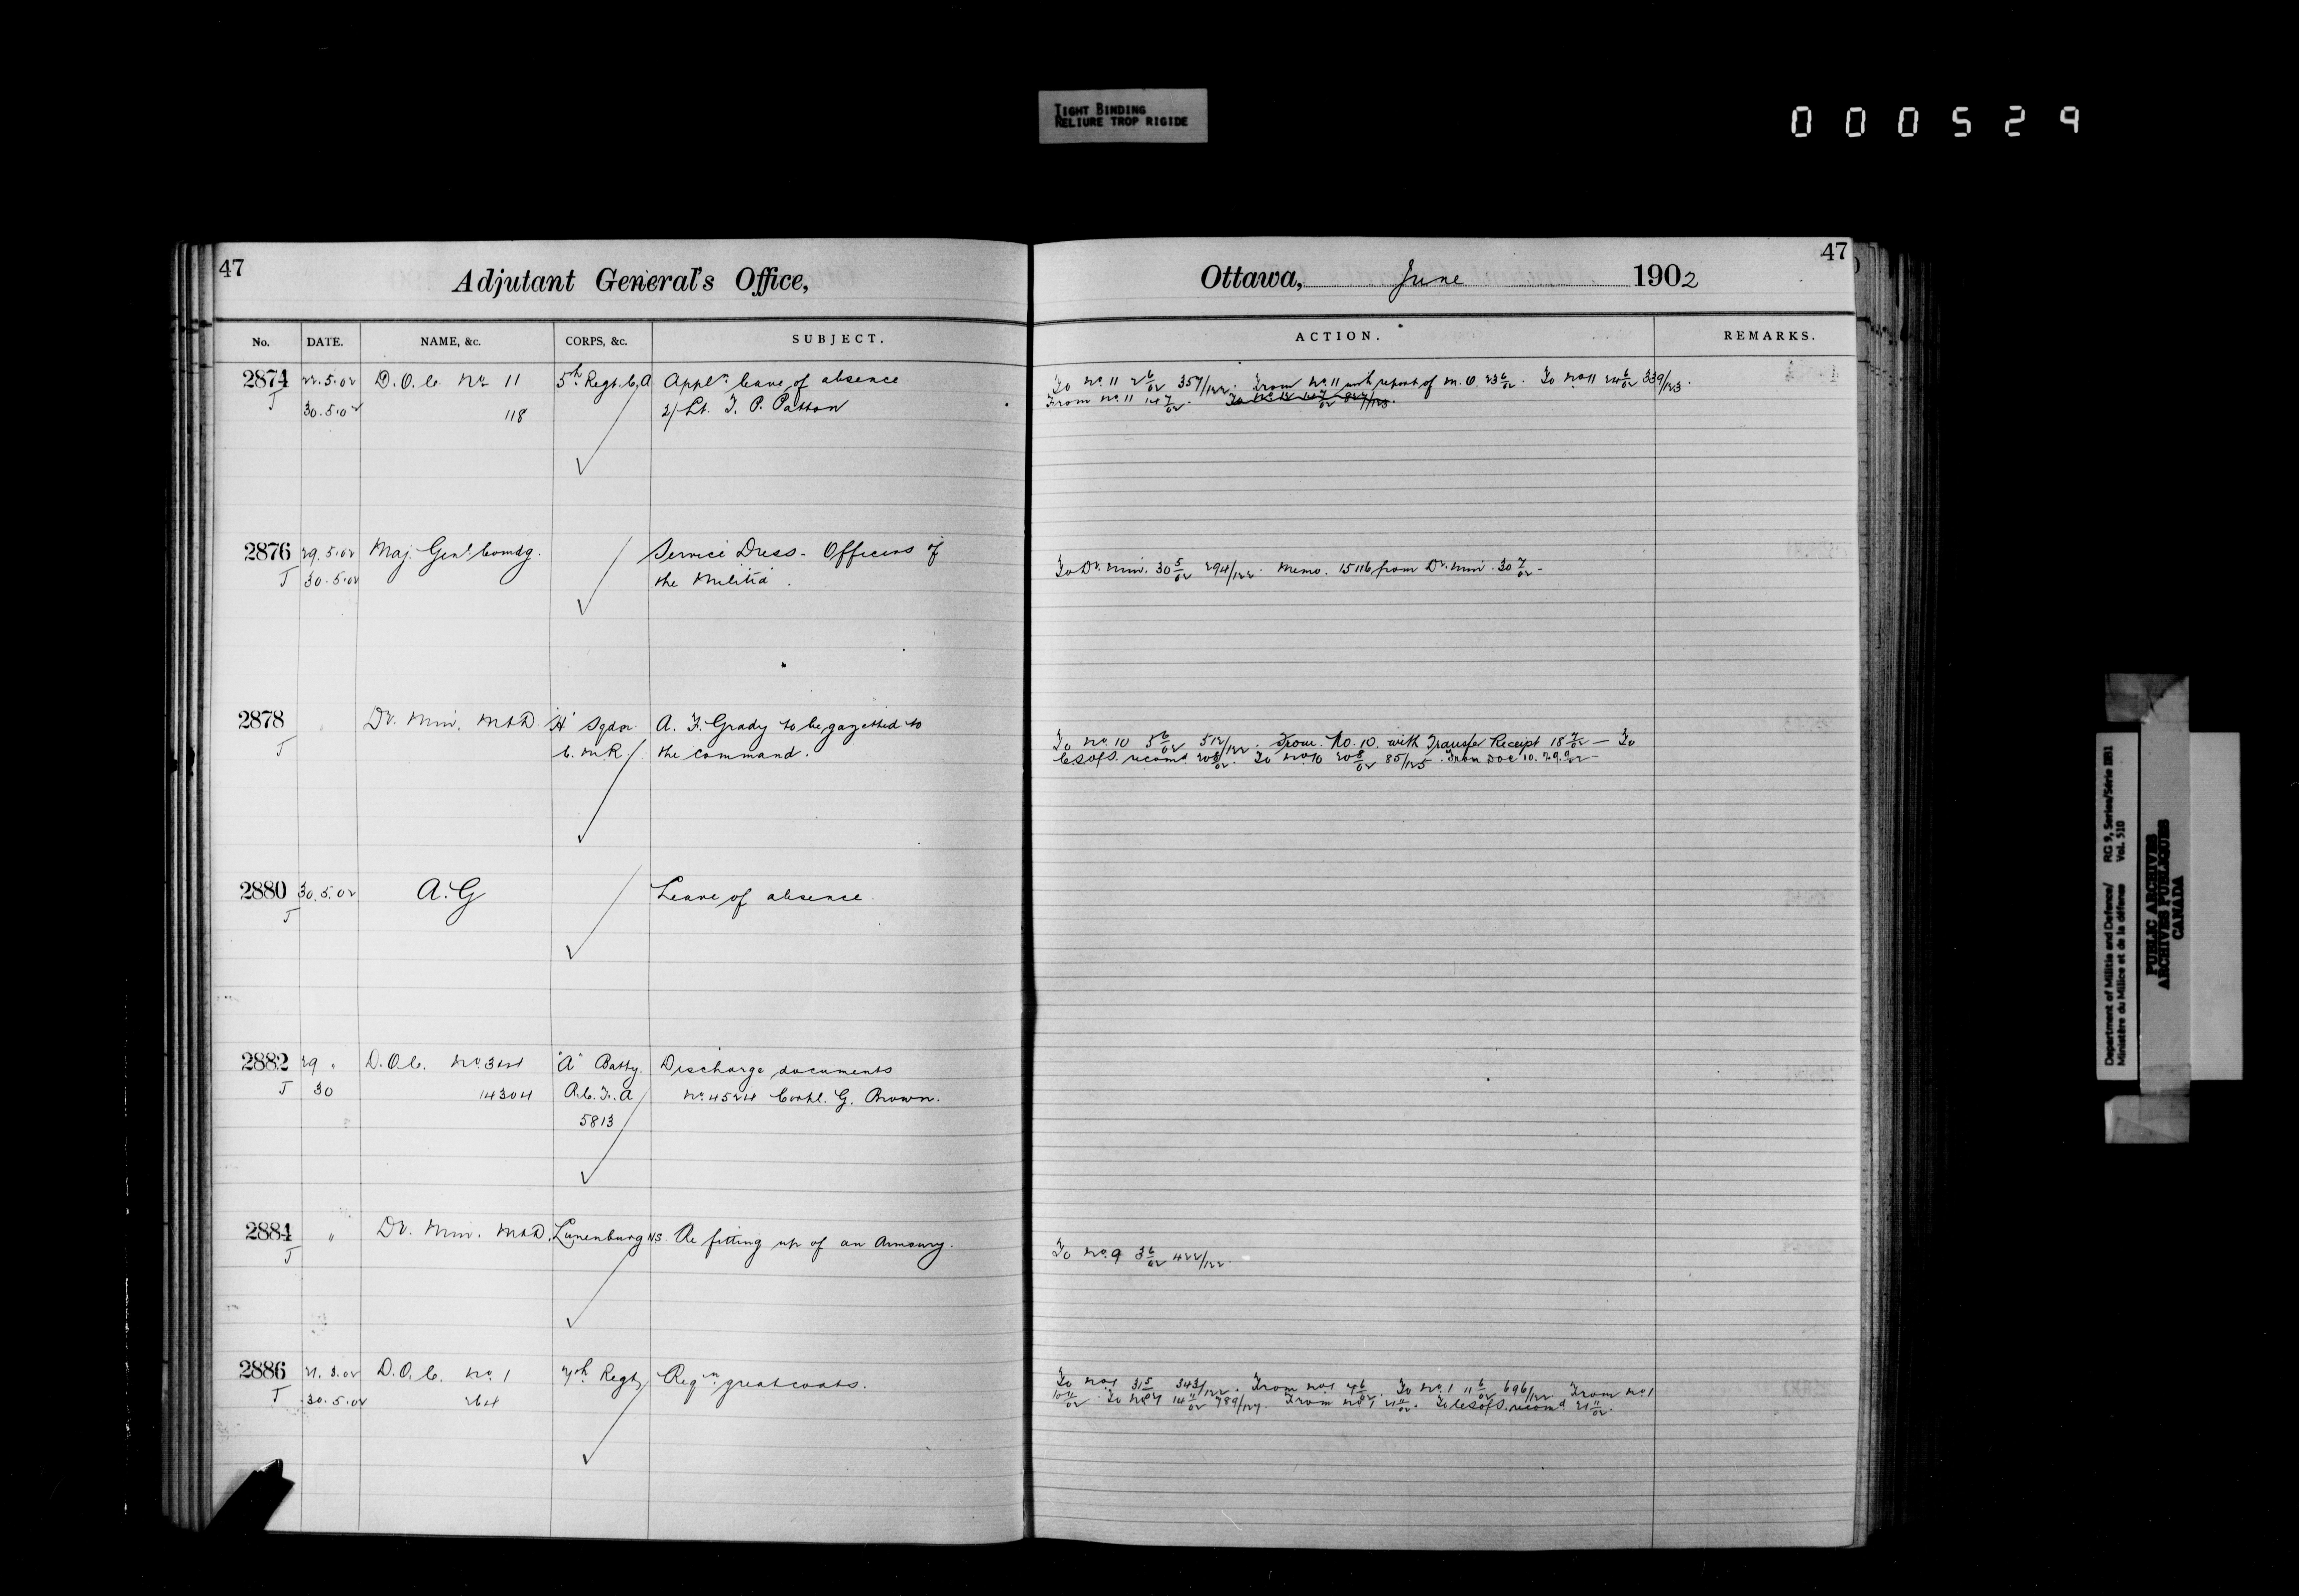 TIGHT BINDING
RELIURE TROP RIGIDE
000529
47
Adjutant General's Office,
Ottawa, June 1902
47
No. DATE. NAME, &c. CORPS, &c. SUBJECT.
ACTION. REMARKS.
2874 22.5.02 D.O.C. No 11 5th Regt. C.A Appln leave of absence
J 30.5.02 118 2/Lt. T. P. Patton
To No. 11 2 6/02 357/122. From No. 11 with report of M.O. 23 6/02. To No 11 24 6/02 339/123.
From No. 11 14 7/02.
2876 29.5.02 Maj. Genl. Comdg. Service Dress - Officers of
J 30.5.02 the Militia.
To Dr. Min. 30 5/02 294/122. Memo. 15116 from Dr. Min. 30 7/02 -
2878 Dr. Min. M&D. "H" Sqdn. A. F. Grady to be gazetted to
J C.M.R. the command.
To No. 10 5 6/02 512/122. From No. 10. with Transfer Receipt 18 7/02 — To
C.S. of S. recomd 20 8/02. To No 10 20 8/02 85/125. From DOC 10. 29.9/02 -
2880 30.5.02 A.G Leave of absence.
J
2882 29 " D.O.C. No. 3&4 "A" Batty. Discharge documents
J 30 14304 R.C.F.A No. 4524 Corpl. G. Brown.
5813
2884 " Dr. Min. M&D. Lunenburg NS. Re fitting up of an Armoury.
J
To No. 9 3 6/02 422/122.
2886 21.3.02 D.O.C. No. 1 7th Regt. Reqn. greatcoats.
J 30.5.02 264
To No 1 31 5/02 343/122. From No 1 7 6/02. To No. 1 11 6/02 696/122. From No. 1
10 11/02. To No 1 14 11/02 789/127. From No 1 21 11/02. To C.S. of S. recomd 21 11/02.
Department of Militia and Defence/ RG 9, Series/Série IIB1
Ministère du Milice et de la défense Vol. 510
PUBLIC ARCHIVES
ARCHIVES PUBLIQUES
CANADA